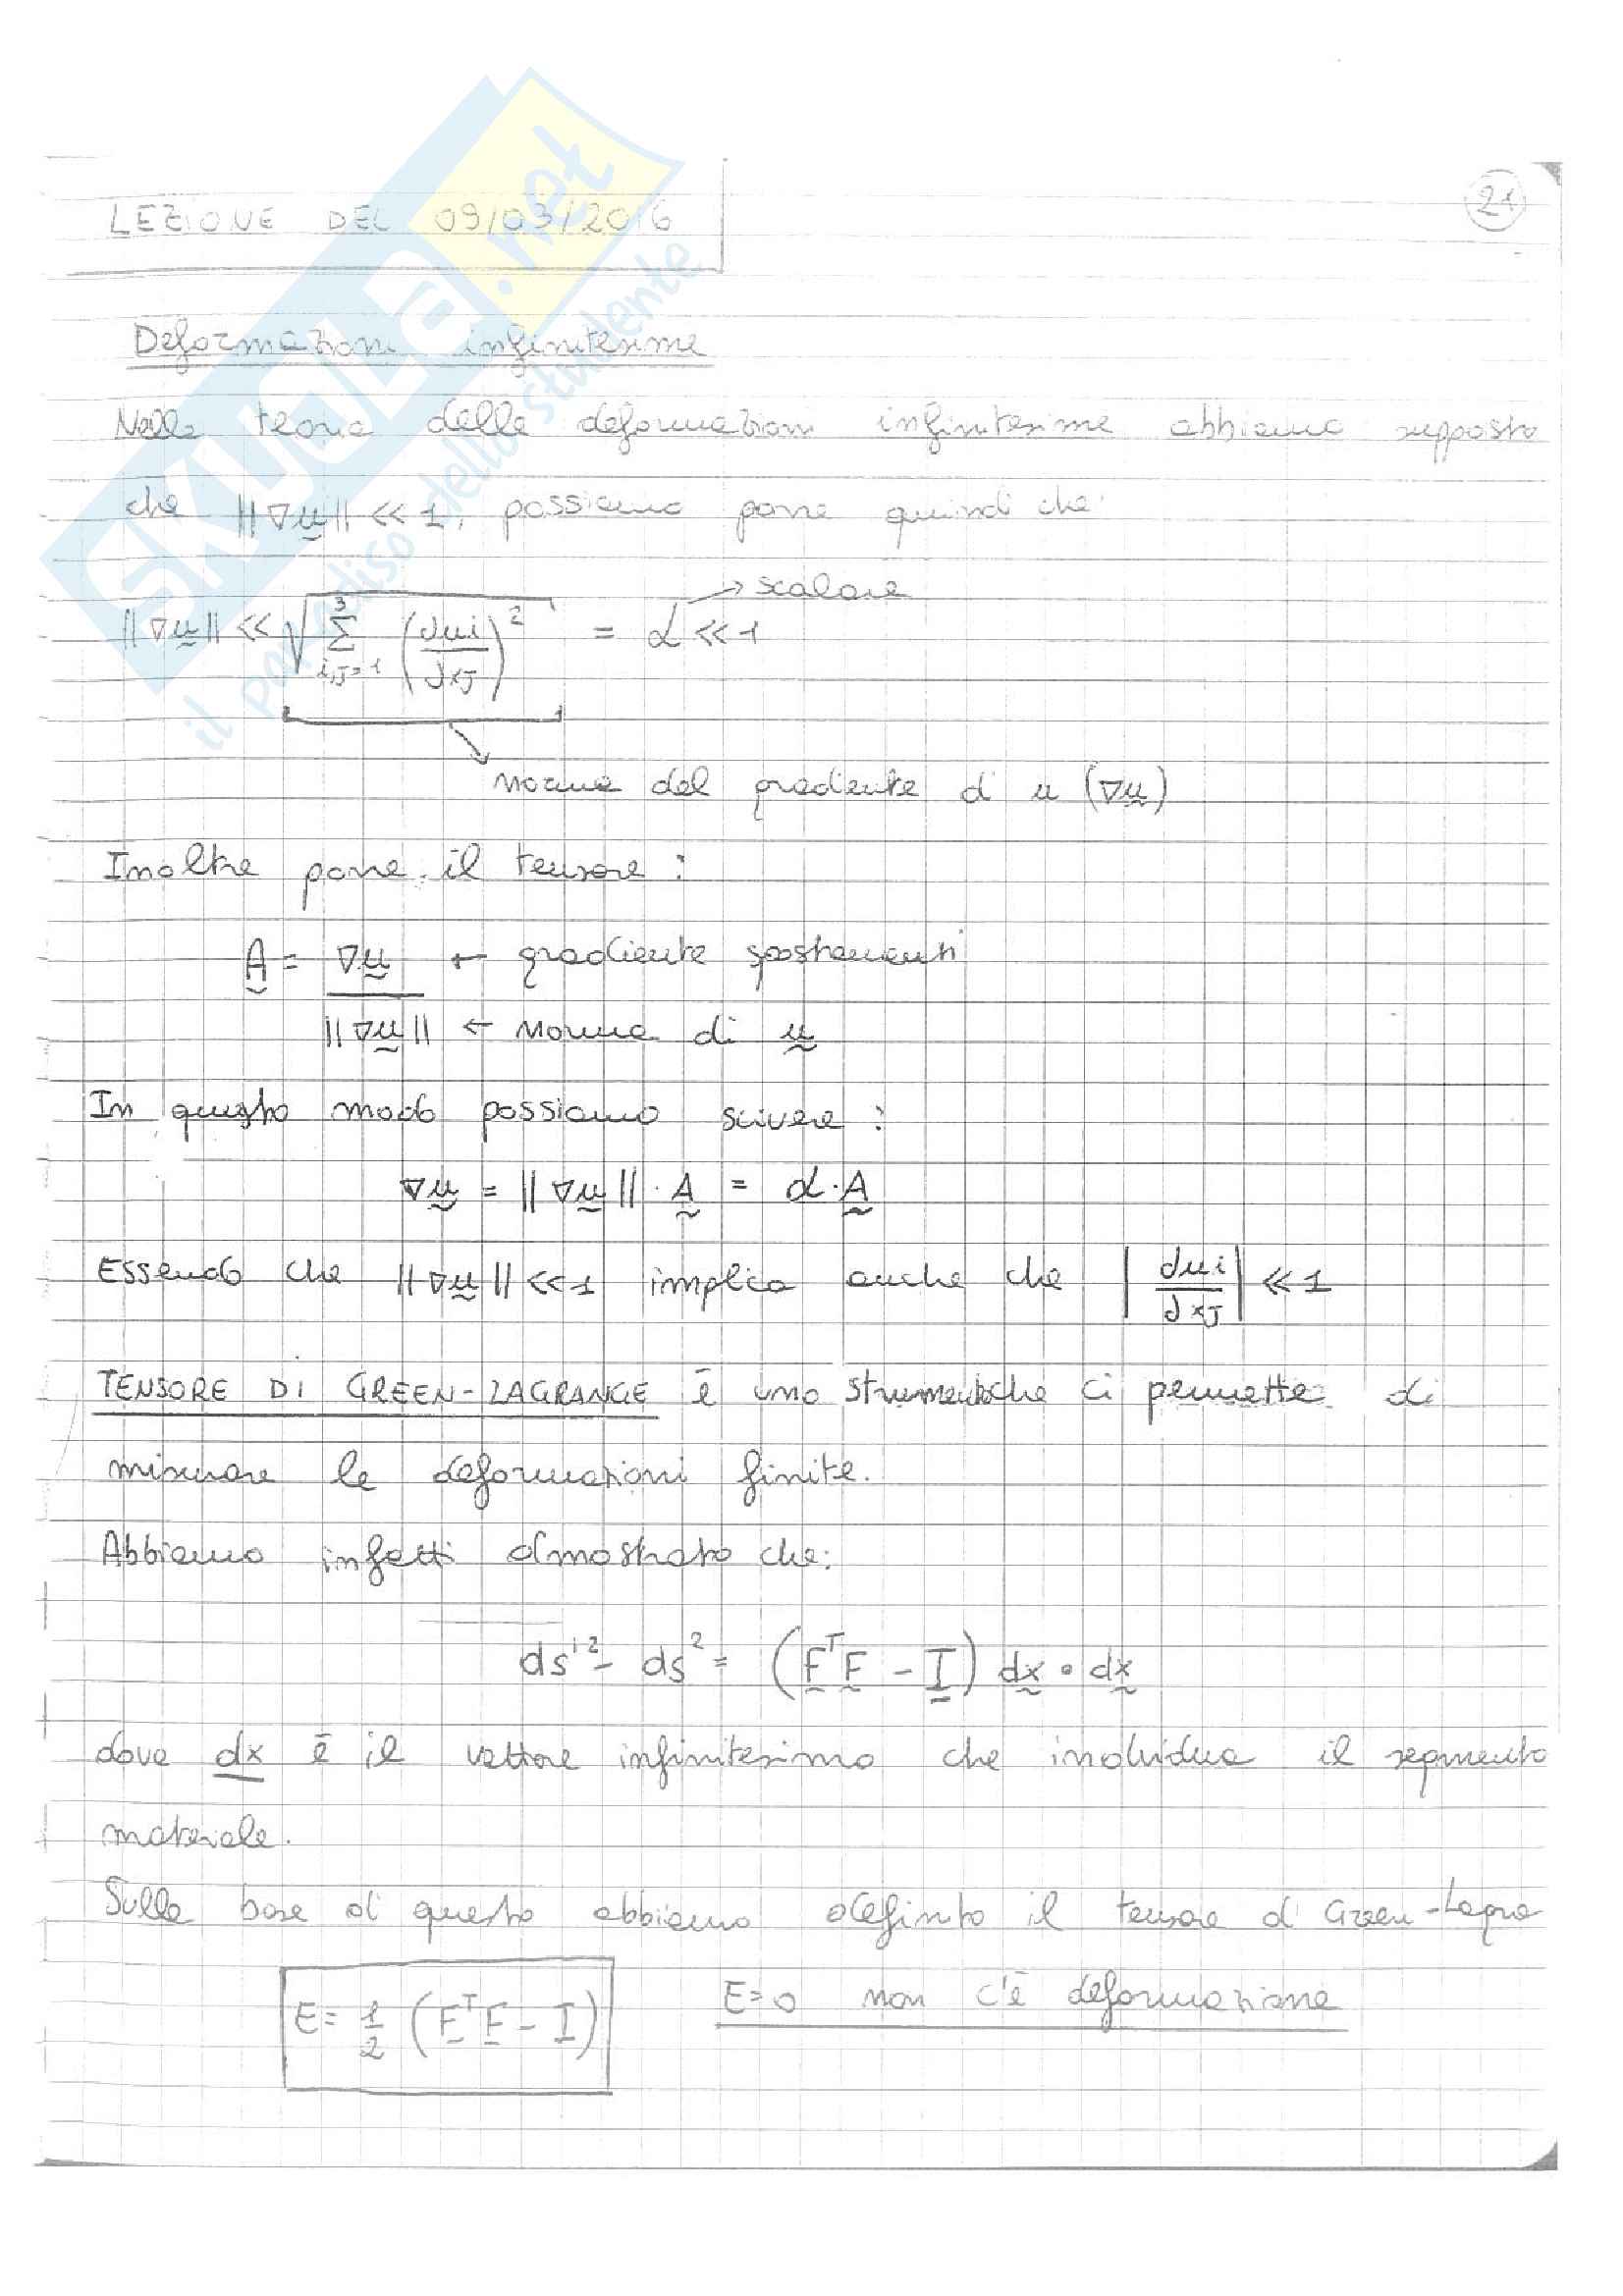 LEZIONE DEL 09/03/2016
21
SKUOLA.net
il paradiso dello studente
Deformazioni infinitesime
Nella teoria delle deformazioni infinitesime abbiamo supposto
che ||∇u|| << 1, possiamo porre quindi che:
→ scalare
||∇u|| << √(Σ³ᵢ,ⱼ₌₁ (∂ui/∂xj)²) = α << 1
norma del gradiente di u (∇u)
Inoltre porre il tensore:
A = ∇u ← gradiente spostamenti
||∇u|| ← norma di u
In questo modo possiamo scrivere:
∇u = ||∇u|| · A = α · A
Essendo che ||∇u|| << 1 implica anche che |∂ui/∂xj| << 1
TENSORE DI GREEN-LAGRANGE è uno strumento che ci permette di
misurare le deformazioni finite.
Abbiamo infatti dimostrato che:
ds'² - ds² = (FᵀF - I) dx · dx
dove dx è il vettore infinitesimo che individua il segmento
materiale.
Sulla base di questo abbiamo definito il tensore di Green-Lagra
E = 1/2 (FᵀF - I)
E=0 non c'è deformazione